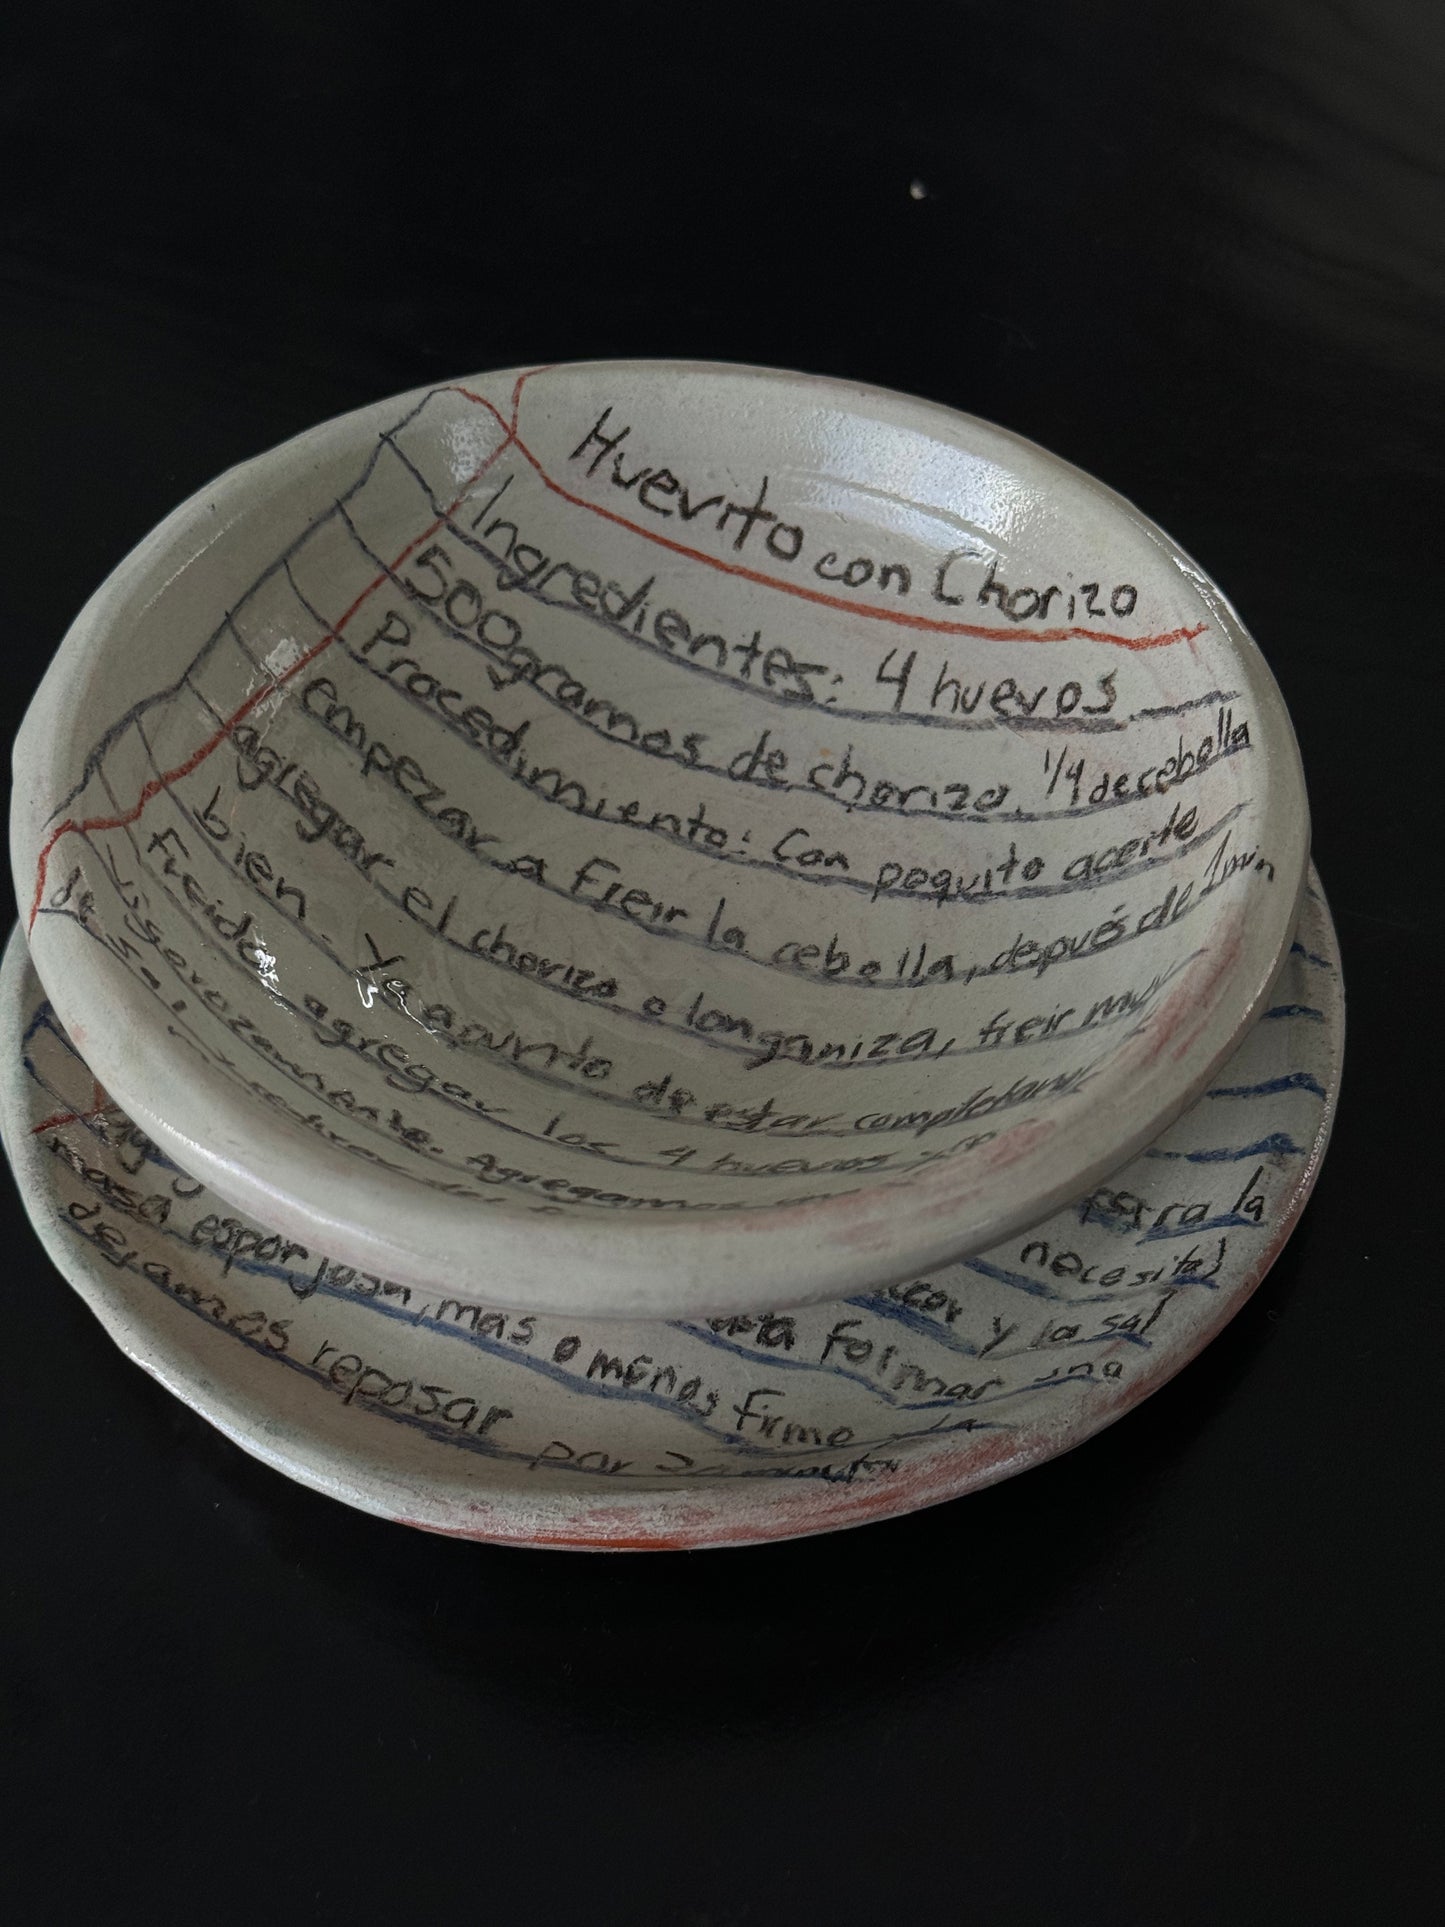 Huevito con Chorizo
Ingredientes: 4 huevos
500gramos de chorizo, 1/4 de cebolla
Procedimiento: Con poquito aceite
empezar a freir la cebolla, depués de 1min
agregar el chorizo o longaniza, freir muy
bien. Ya apunto de estar
freido agregar los 4 huevos y
vigorozamente. Agregamos
de sal y
para la
necesita)
y la sal
formar una
masa esporjosa, mas o menos firme la
dejamos reposar por